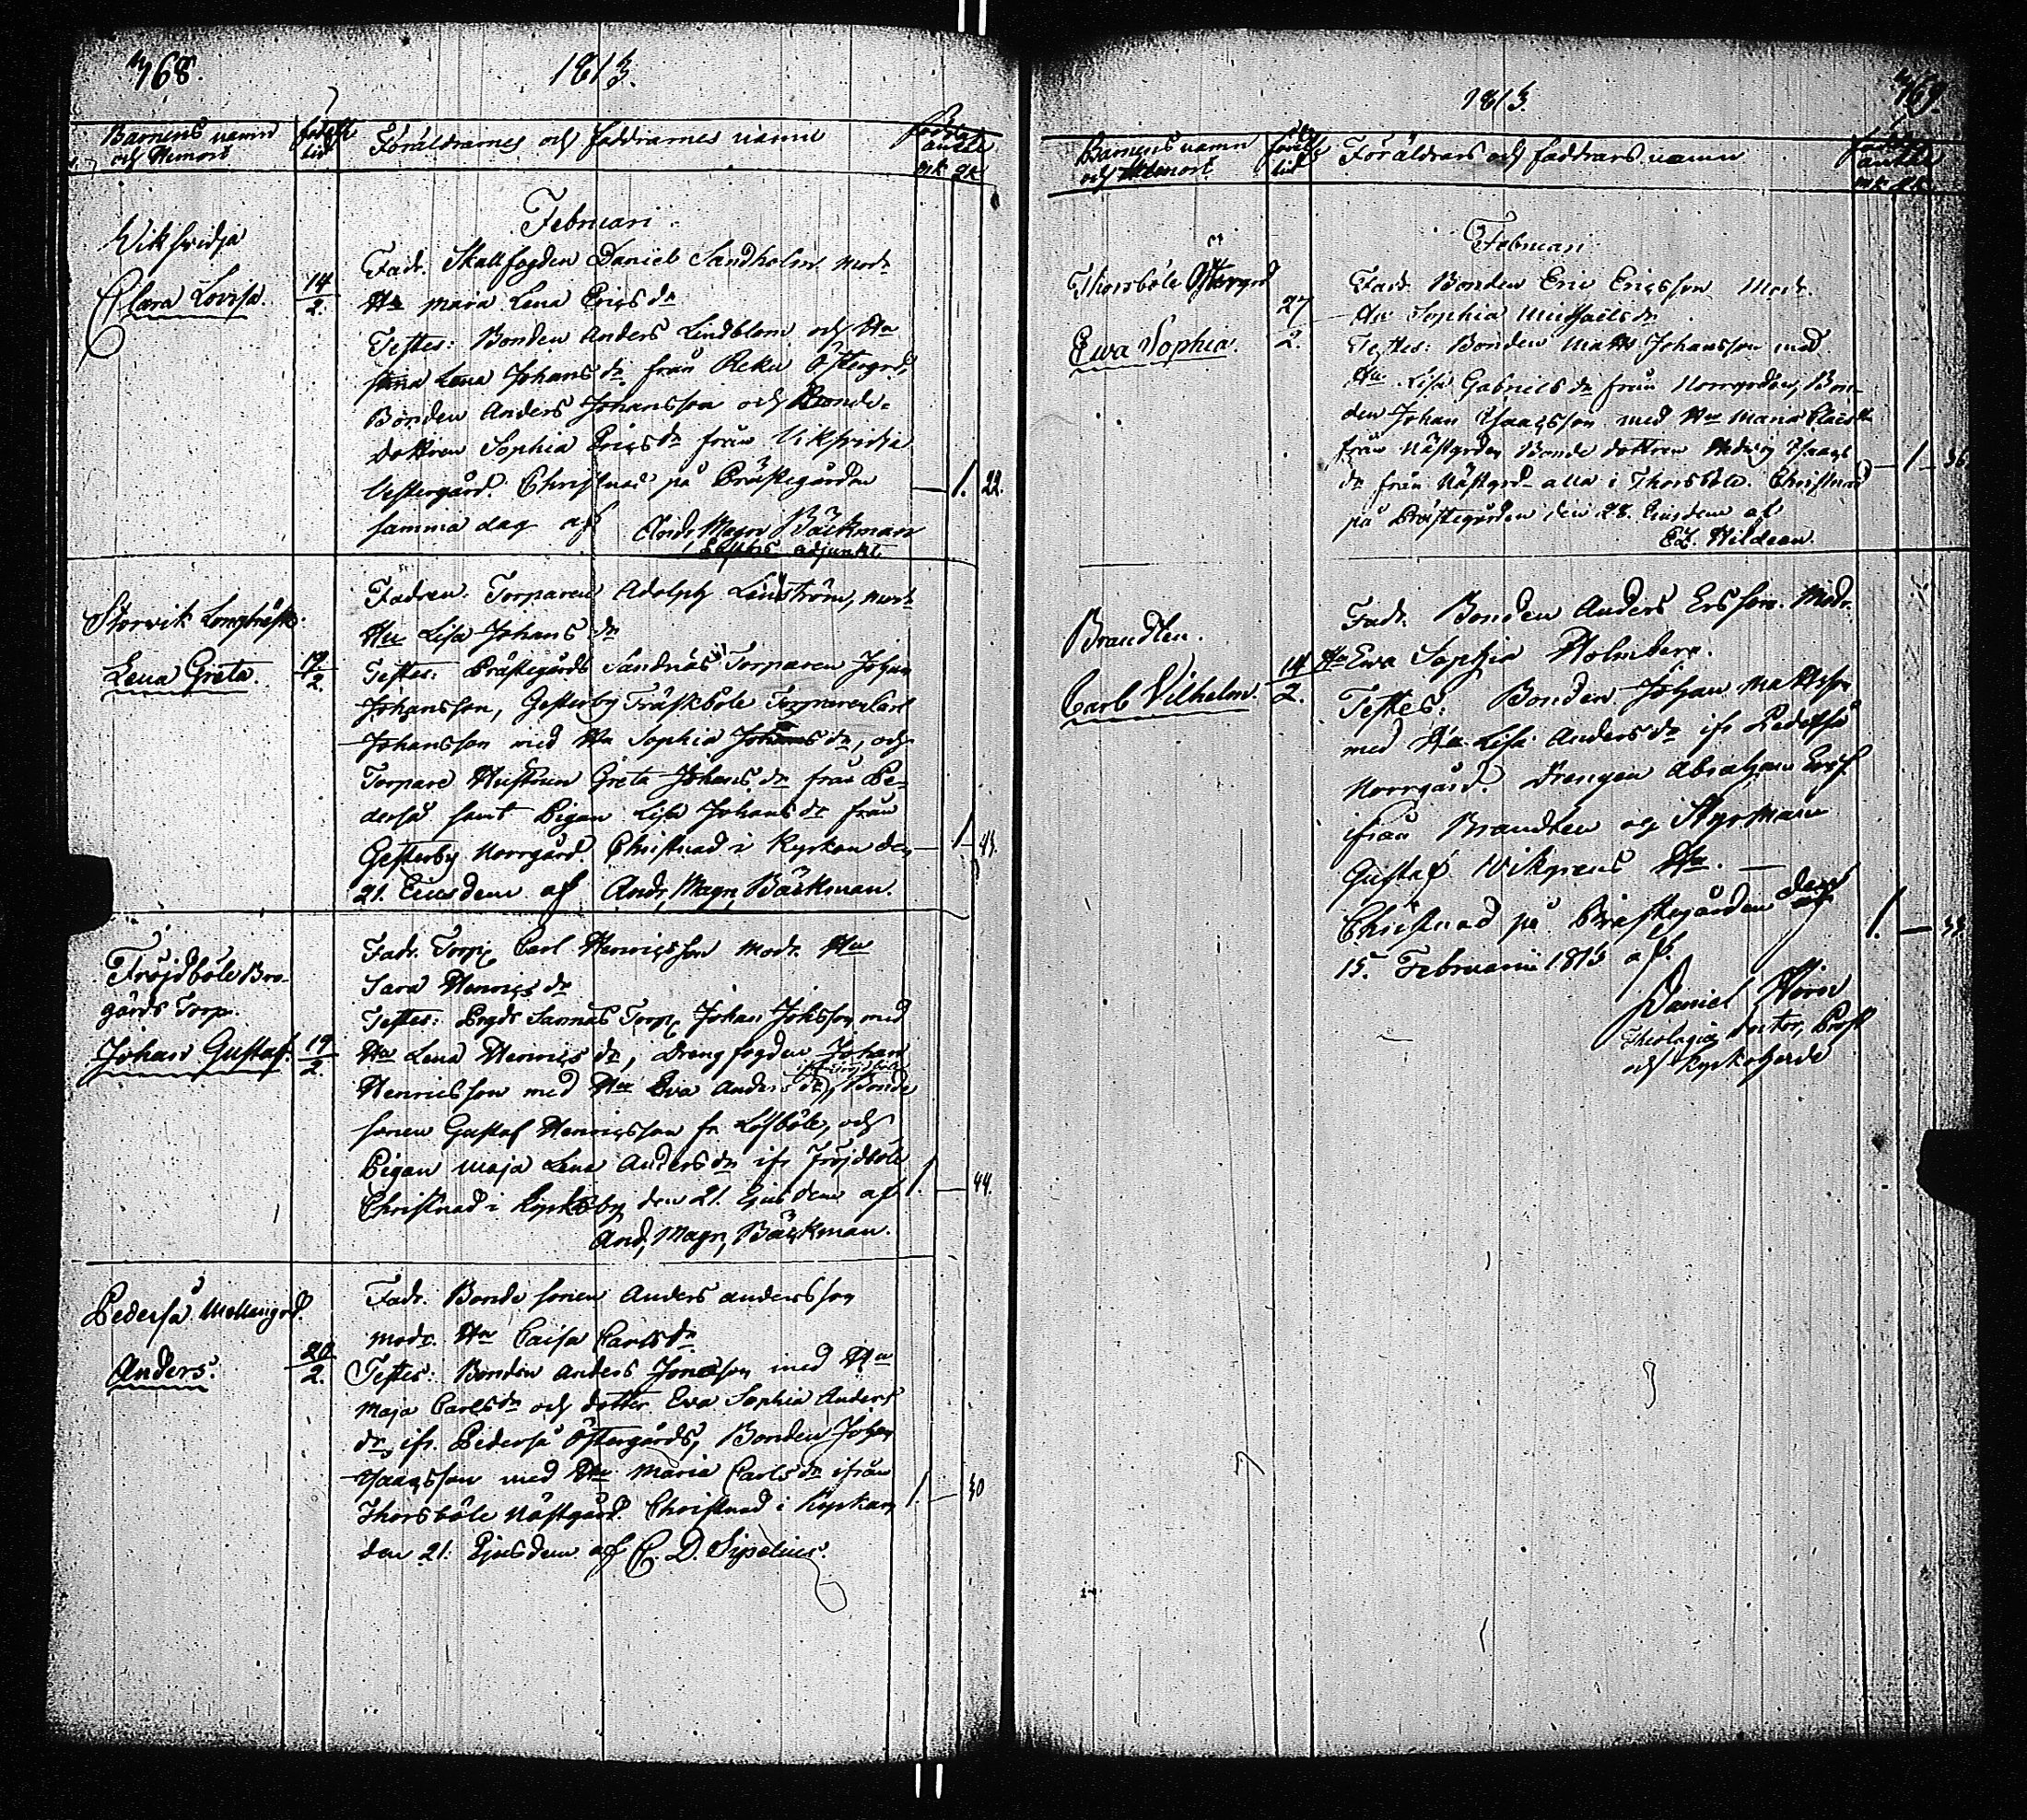 768.
1813.
Barnens namn
och Hemort
födelse
tid
Föräldrarnes och faddrarnes namn
mk qk
Februari
Vikfridja
Clara Lovisa.
14
2.
Fadr. Skallfogden Daniel Sandholm modr
Hu Maria Lena Ericsdr
Testes: Bonden Anders Lindblom och Hu
Lena Johansdr från Reku Östergrd,
Bonden Anders Johansson och Bonde-
dottren Sophia Ericsdr från Vikfridja
Vestergård. Christnad på Prästegården
samma dag af And. Magn Bäckman
adjunkt.
1. 22.
Storvik Långträsk.
Lena Greta.
19
2.
Fadren. Torparen Adolph Lindström, modr
Hu Lisa Johansdr
Testes: Prästegårds Sandnäs Torparen Johan
Johansson, Gesterby Träskböle Torparen Carl
Johansson med Hu Sophia Johansdr, och
Torpare Hustrun Greta Johansdr från Pe-
derså samt Pigan Lisa Johansdr från
Gesterby Norrgård. Christnad i Kyrkan den
21. Ejusdem af Andr, Magn, Bäckman.
1 43.
Fröjdböle Bro-
gårds Torp.
Johan Gustaf.
19
2.
Fadr. Torp. Carl Henricsson Modr. Hu
Sara Henricsdr
Testes: Prgds Sannäs Torp. Johan Johsson med
Hu Lena Henricsdr, Drengfogden Johan
Henricsson med Hu Eva Andersdr, Bonde
ifr Fröjdböle
sonen Gustaf Henricsson fr Löfböle, och
Pigan Maja Lena Andersdr ifr Fröjdböle
Christnad i Kyrkoby den 21. Ejusdem af
And, Magn, Bäckman.
1. 44.
Pederså Mellangrd.
Anders.
20
2.
Fadr. Bonde sonen Anders Andersson
modr. Hu Caisa Carlsdr
Testes: Bonden Anders Jonasson med Hu
Maja Carlsdr och dotter Eva Sophia Anders
dr, ifr. Pederså Östergårds, Bonden Johan
Isaacsson med Hu Maria Carlsdr ifrån
Thorsböle Nästgård. Christnad i Kyrkan
den 21. Ejusdem af C. D. Sipelius.
1. 30
769.
1813.
Barnens namn
och Hemort.
födelse
tid
Föräldrars och faddrars namn
Februari
Thorsböle Östergrd
Ewa Sophia.
27
2.
Fadr. Bonden Eric Ericsson Modr.
Hu Sophia Michaelsdr
Testes: Bonden Matts Johansson med
Hu Lisa Gabrielsdr från Norrgården, Bon-
den Johan Isaacsson med Hu Maria
från Nästgården Bonde dottren Hedvig Isaacs
dr från Nästgrd alla i Thorsböle. Christnad
på Prästegården den 28. Ejusdem af
Hildeen.
1 36
Brandten.
Carl Vilhelm.
14
2.
Fadr. Bonden Anders Ersson. Modr.
Hu Ewa Sophia Holmberg.
Testes: Bonden Johan Mattsson
med Hu Lisa Andersdr ifr Pederså
Norrgård. Drengen Abraham Ersf
ifrån Brandten og Styrman
Gustaf Wikgrens Hu.
Christnad på Prästegården den
15. Februarii 1813 af
Daniel Hirn
Theologiæ Doctor, Prost
och Kyrkoherde
1.